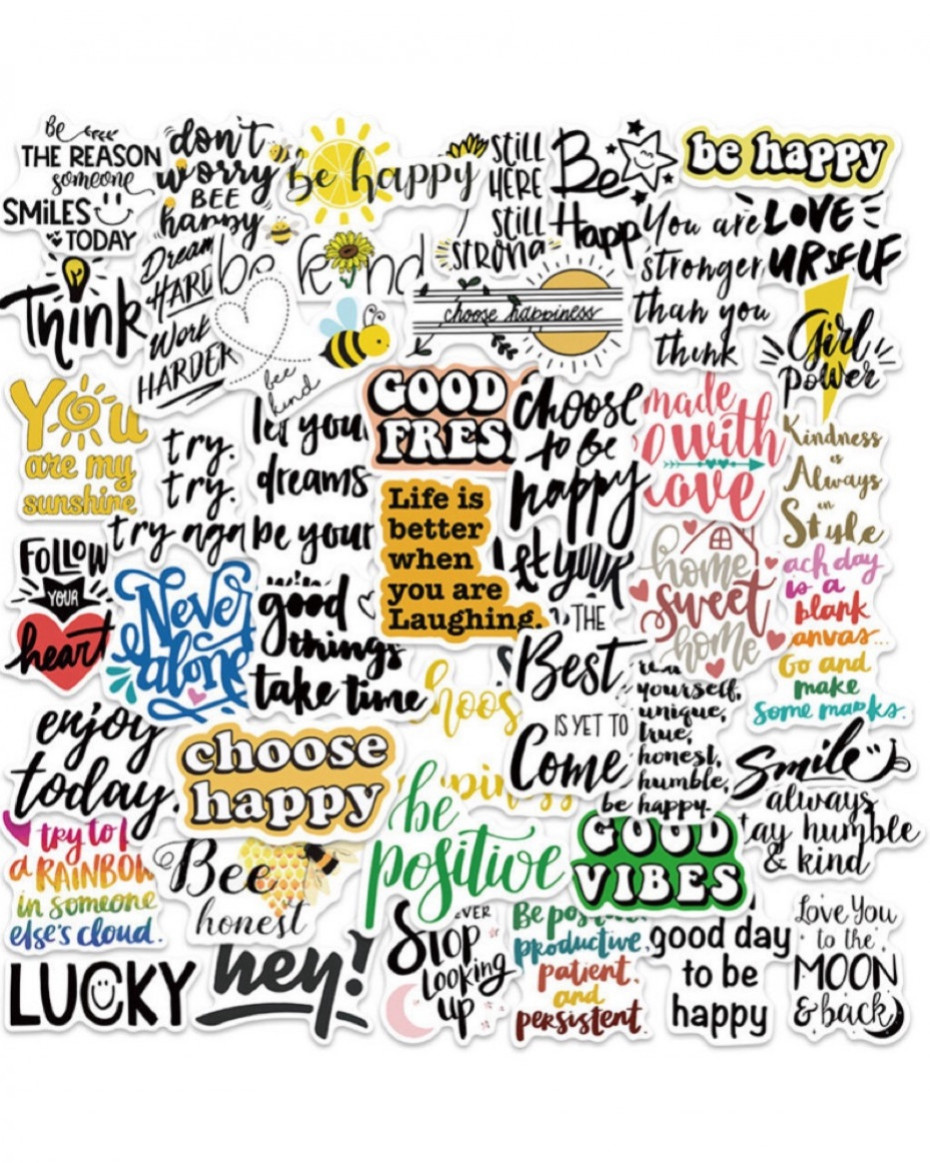 Be
THE REASON
someone
SMiLES
TODAY
don't
worry
BEE
happy
be happy
STILL
HERE
STILL
STRONG
Be
Happ
be happy
You are
stronger
than you
think
LOVE
URSELF
Think
Dream
HARD
Work
HARDER
be kind
bee
kind
choose happiness
Girl
power
You
are my
sunshine
try.
try.
try again
let your
dreams
be your
GOOD
FRES
choose
to be
happy
made
with
love
Kindness
is
Always
in
Style
Life is
better
when
you are
Laughing.
let your
FOLLOW
YOUR
heart
Never
alone
good
things
take time
THE
Best
IS YET TO
Come
home
sweet
home
ach day
is a
blank
anvas...
Go and
make
some marks.
enjoy
today.
choose
happy
choos
pin
yourself,
unique,
true,
honest,
humble,
be happy.
Smile
always
tay humble
& kind
try to
a RAINBOW
in someone
else's cloud.
Bee
honest
be
positive
GOOD
VIBES
LUCKY
hey!
EVER
Stop
Looking
up
Be pos
productive,
patient,
and
persistent.
good day
to be
happy
Love You
to the
MOON
& back